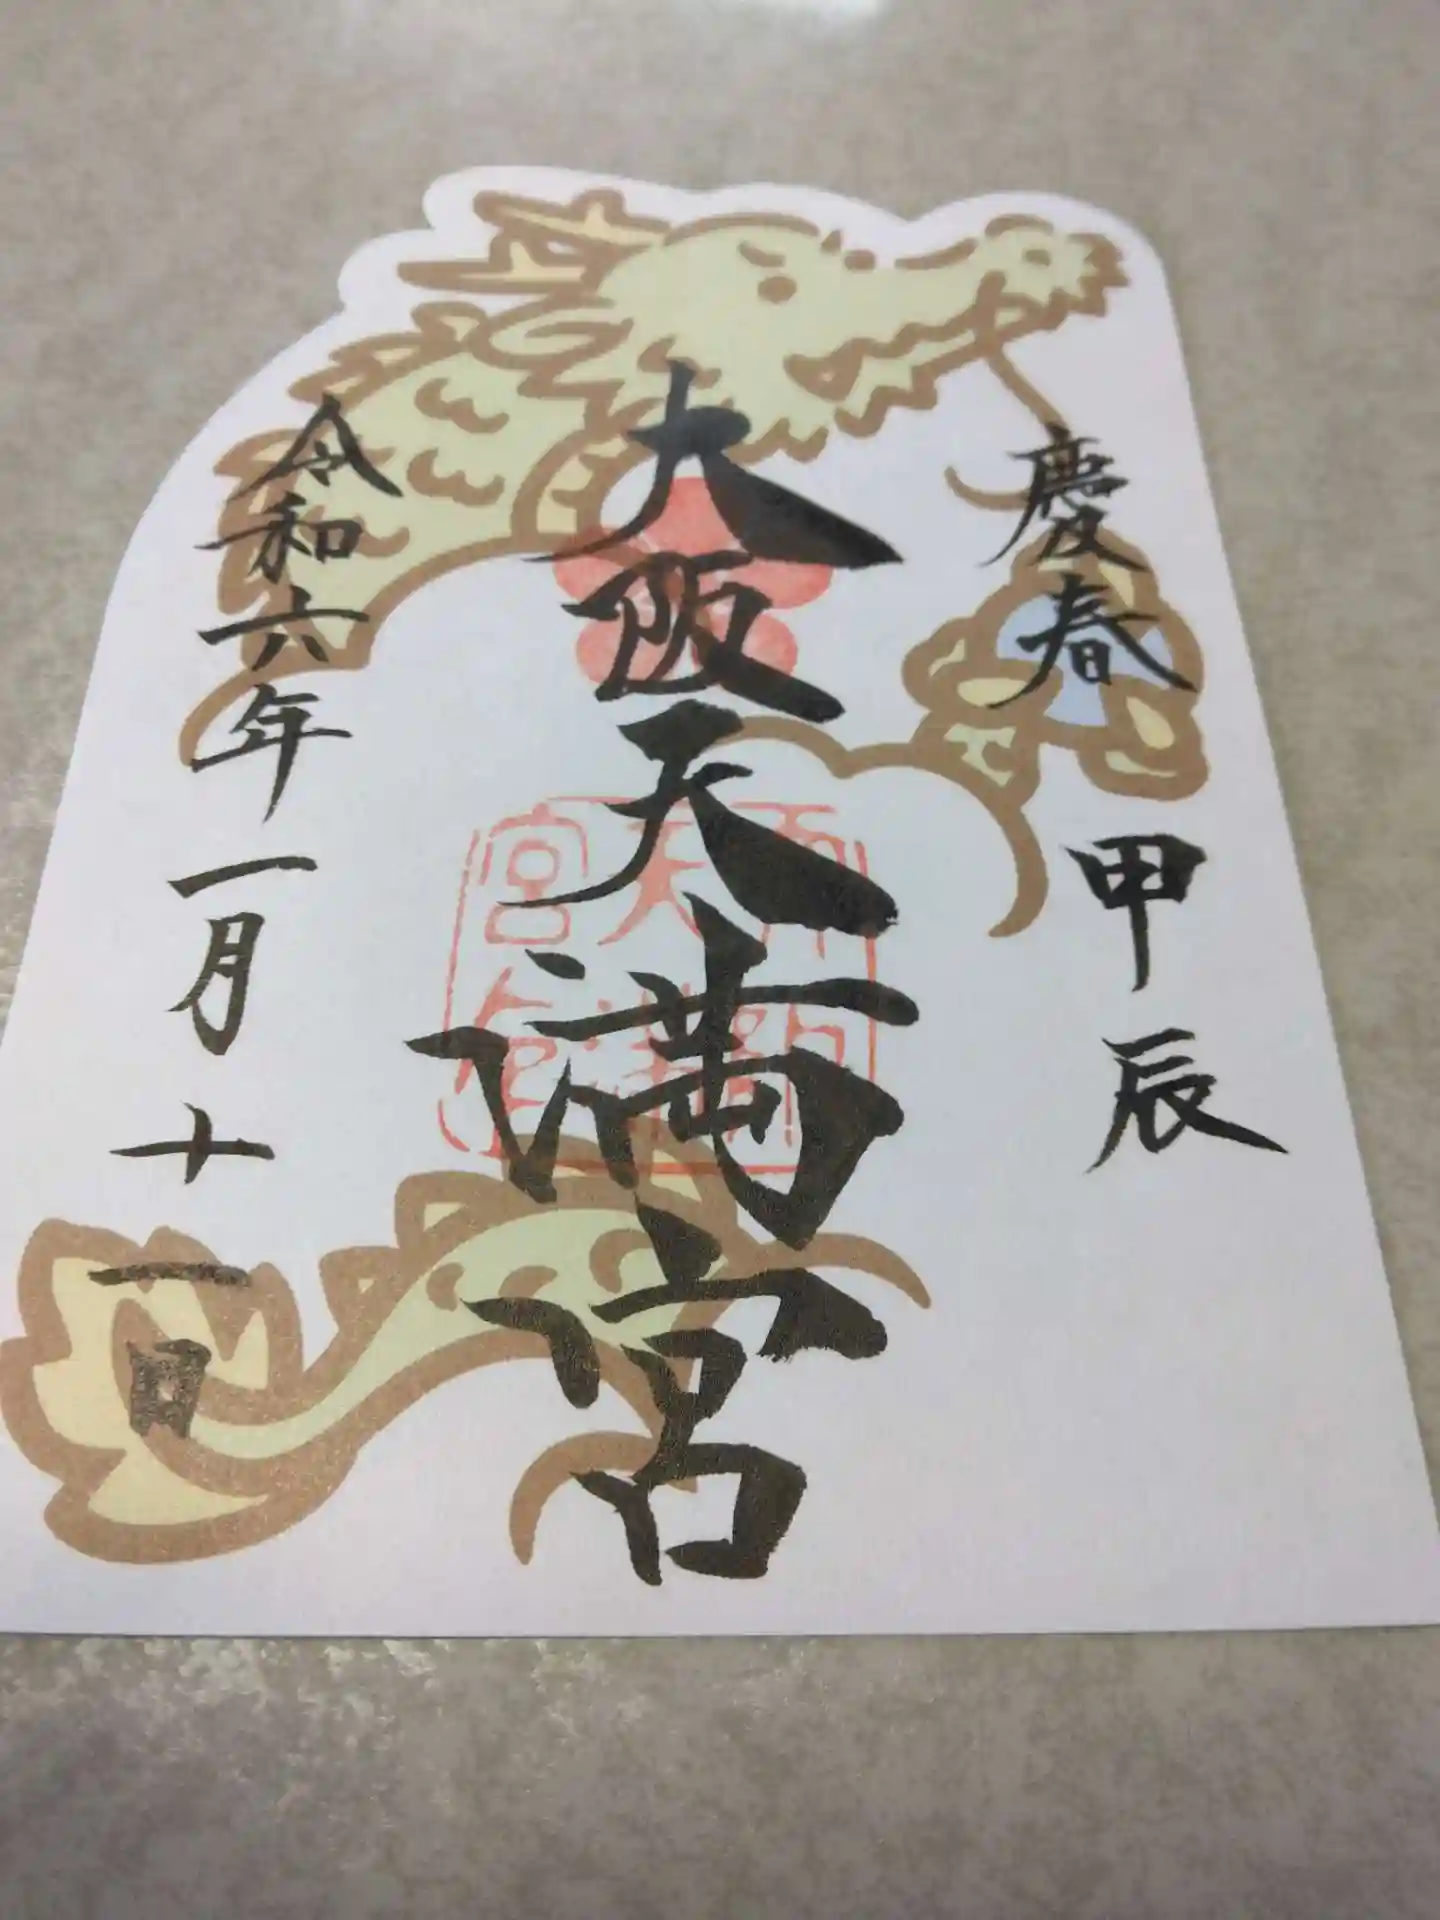 慶春 甲辰
大阪天満宮
令和六年一月十一日